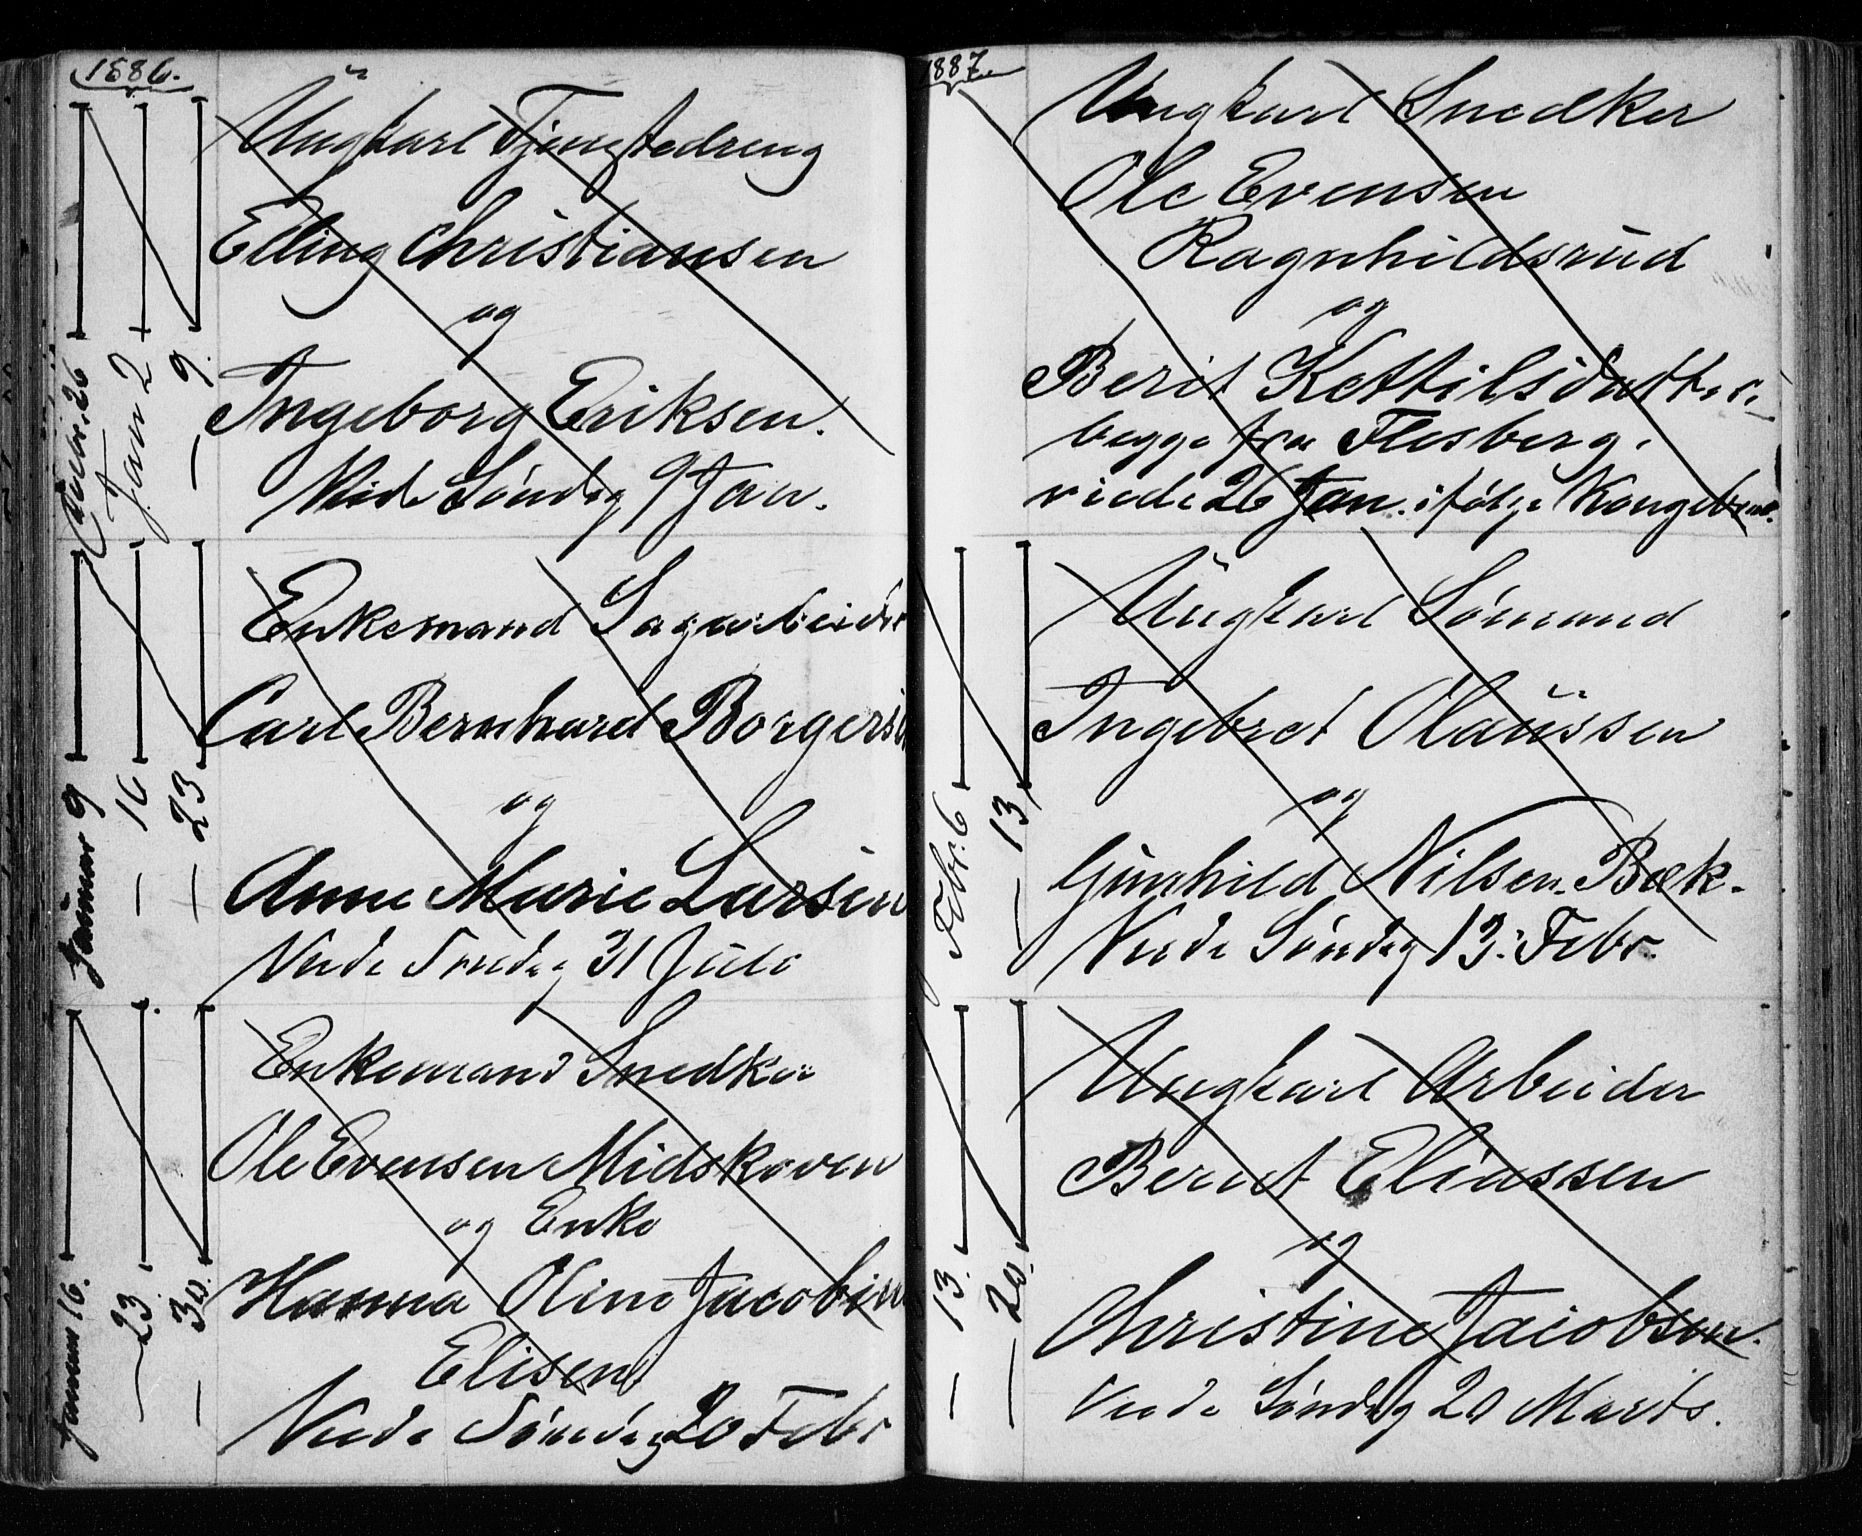 1886.
Ungkarl Tjenestedreng
Elling Christiansen
og
Ingeborg Eriksen.
Viede Søndag 9 Jan.
Decbr. 26
Jan 2
— 9.
Enkemand Sagarbeider
Carl Bernhard Borgersen
og
Anne Marie Larsen
Viede Søndag 31 Juli
Januar 9
— 16
— 23
Enkemand Snedker
Ole Evensen Midskoven
og Enke
Hanna Oline Jacobine
Elisen
Viede Søndag 20 Febr
Januar 16.
— 23.
— 30.
1887.
Ungkarl Snedker
Ole Evensen
Ragnhildsrud
og
Berit Kettilsdatter.
begge fra Flesberg.
viede 26 Jan. ifølge Kongebrev.
Ungkarl Sømand
Ingebret Olaussen
og
Gunhild Nilsen Bæk.
Viede Søndag 13. Febr.
Febr. 6
— 13
Ungkarl Arbeider
Bernt Eliassen
og
Christine Jacobsen.
Viede Søndag 20 Marts.
— 13.
— 20.